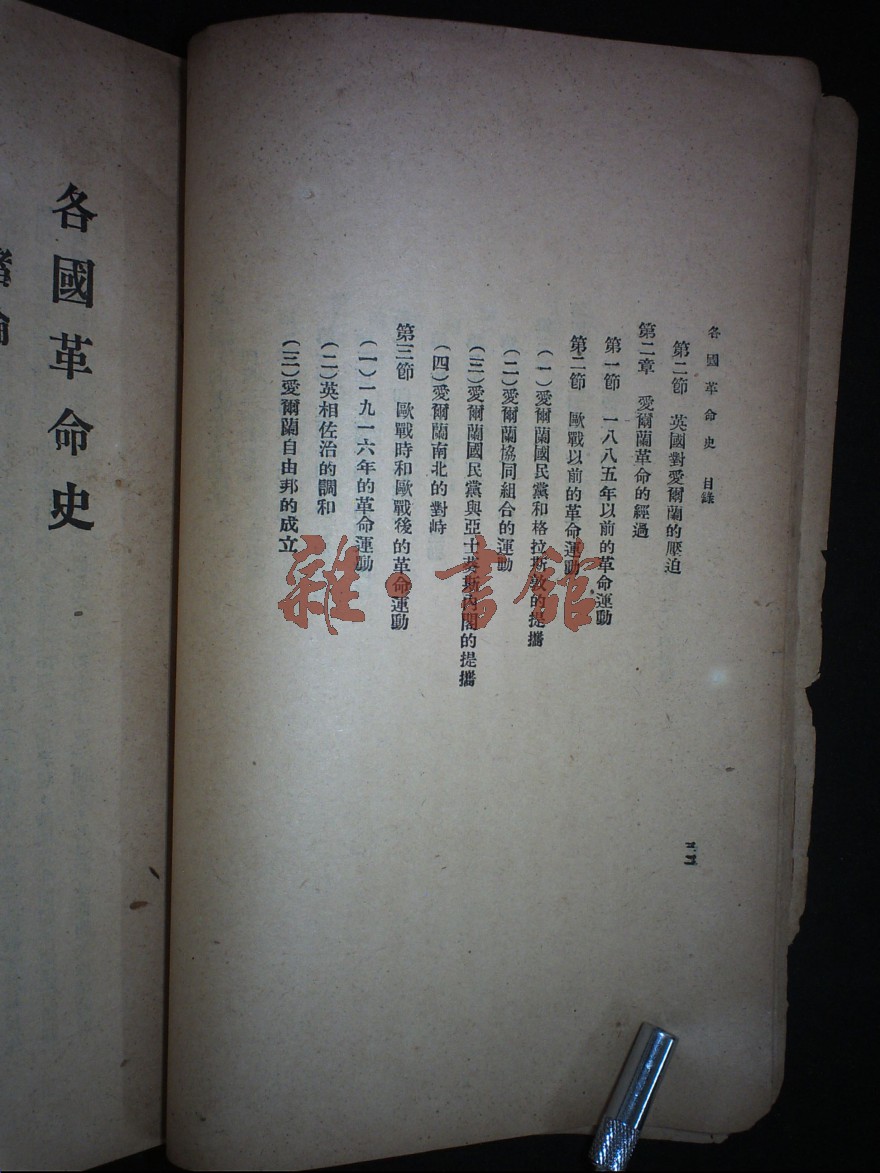 各國革命史 目錄
第二節 英國對愛爾蘭的壓迫
第二章 愛爾蘭革命的經過
第一節 一八八五年以前的革命運動
第二節 歐戰以前的革命運動
(一)愛爾蘭國民黨和格拉斯敦的提攜
(二)愛爾蘭協同組合的運動
(三)愛爾蘭國民黨與亞士葵斯內閣的提攜
(四)愛爾蘭南北的對峙
第三節 歐戰時和歐戰後的革命運動
(一)一九一六年的革命運動
(二)英相佐治的調和
(三)愛爾蘭自由邦的成立
各國革命史
雜·書館